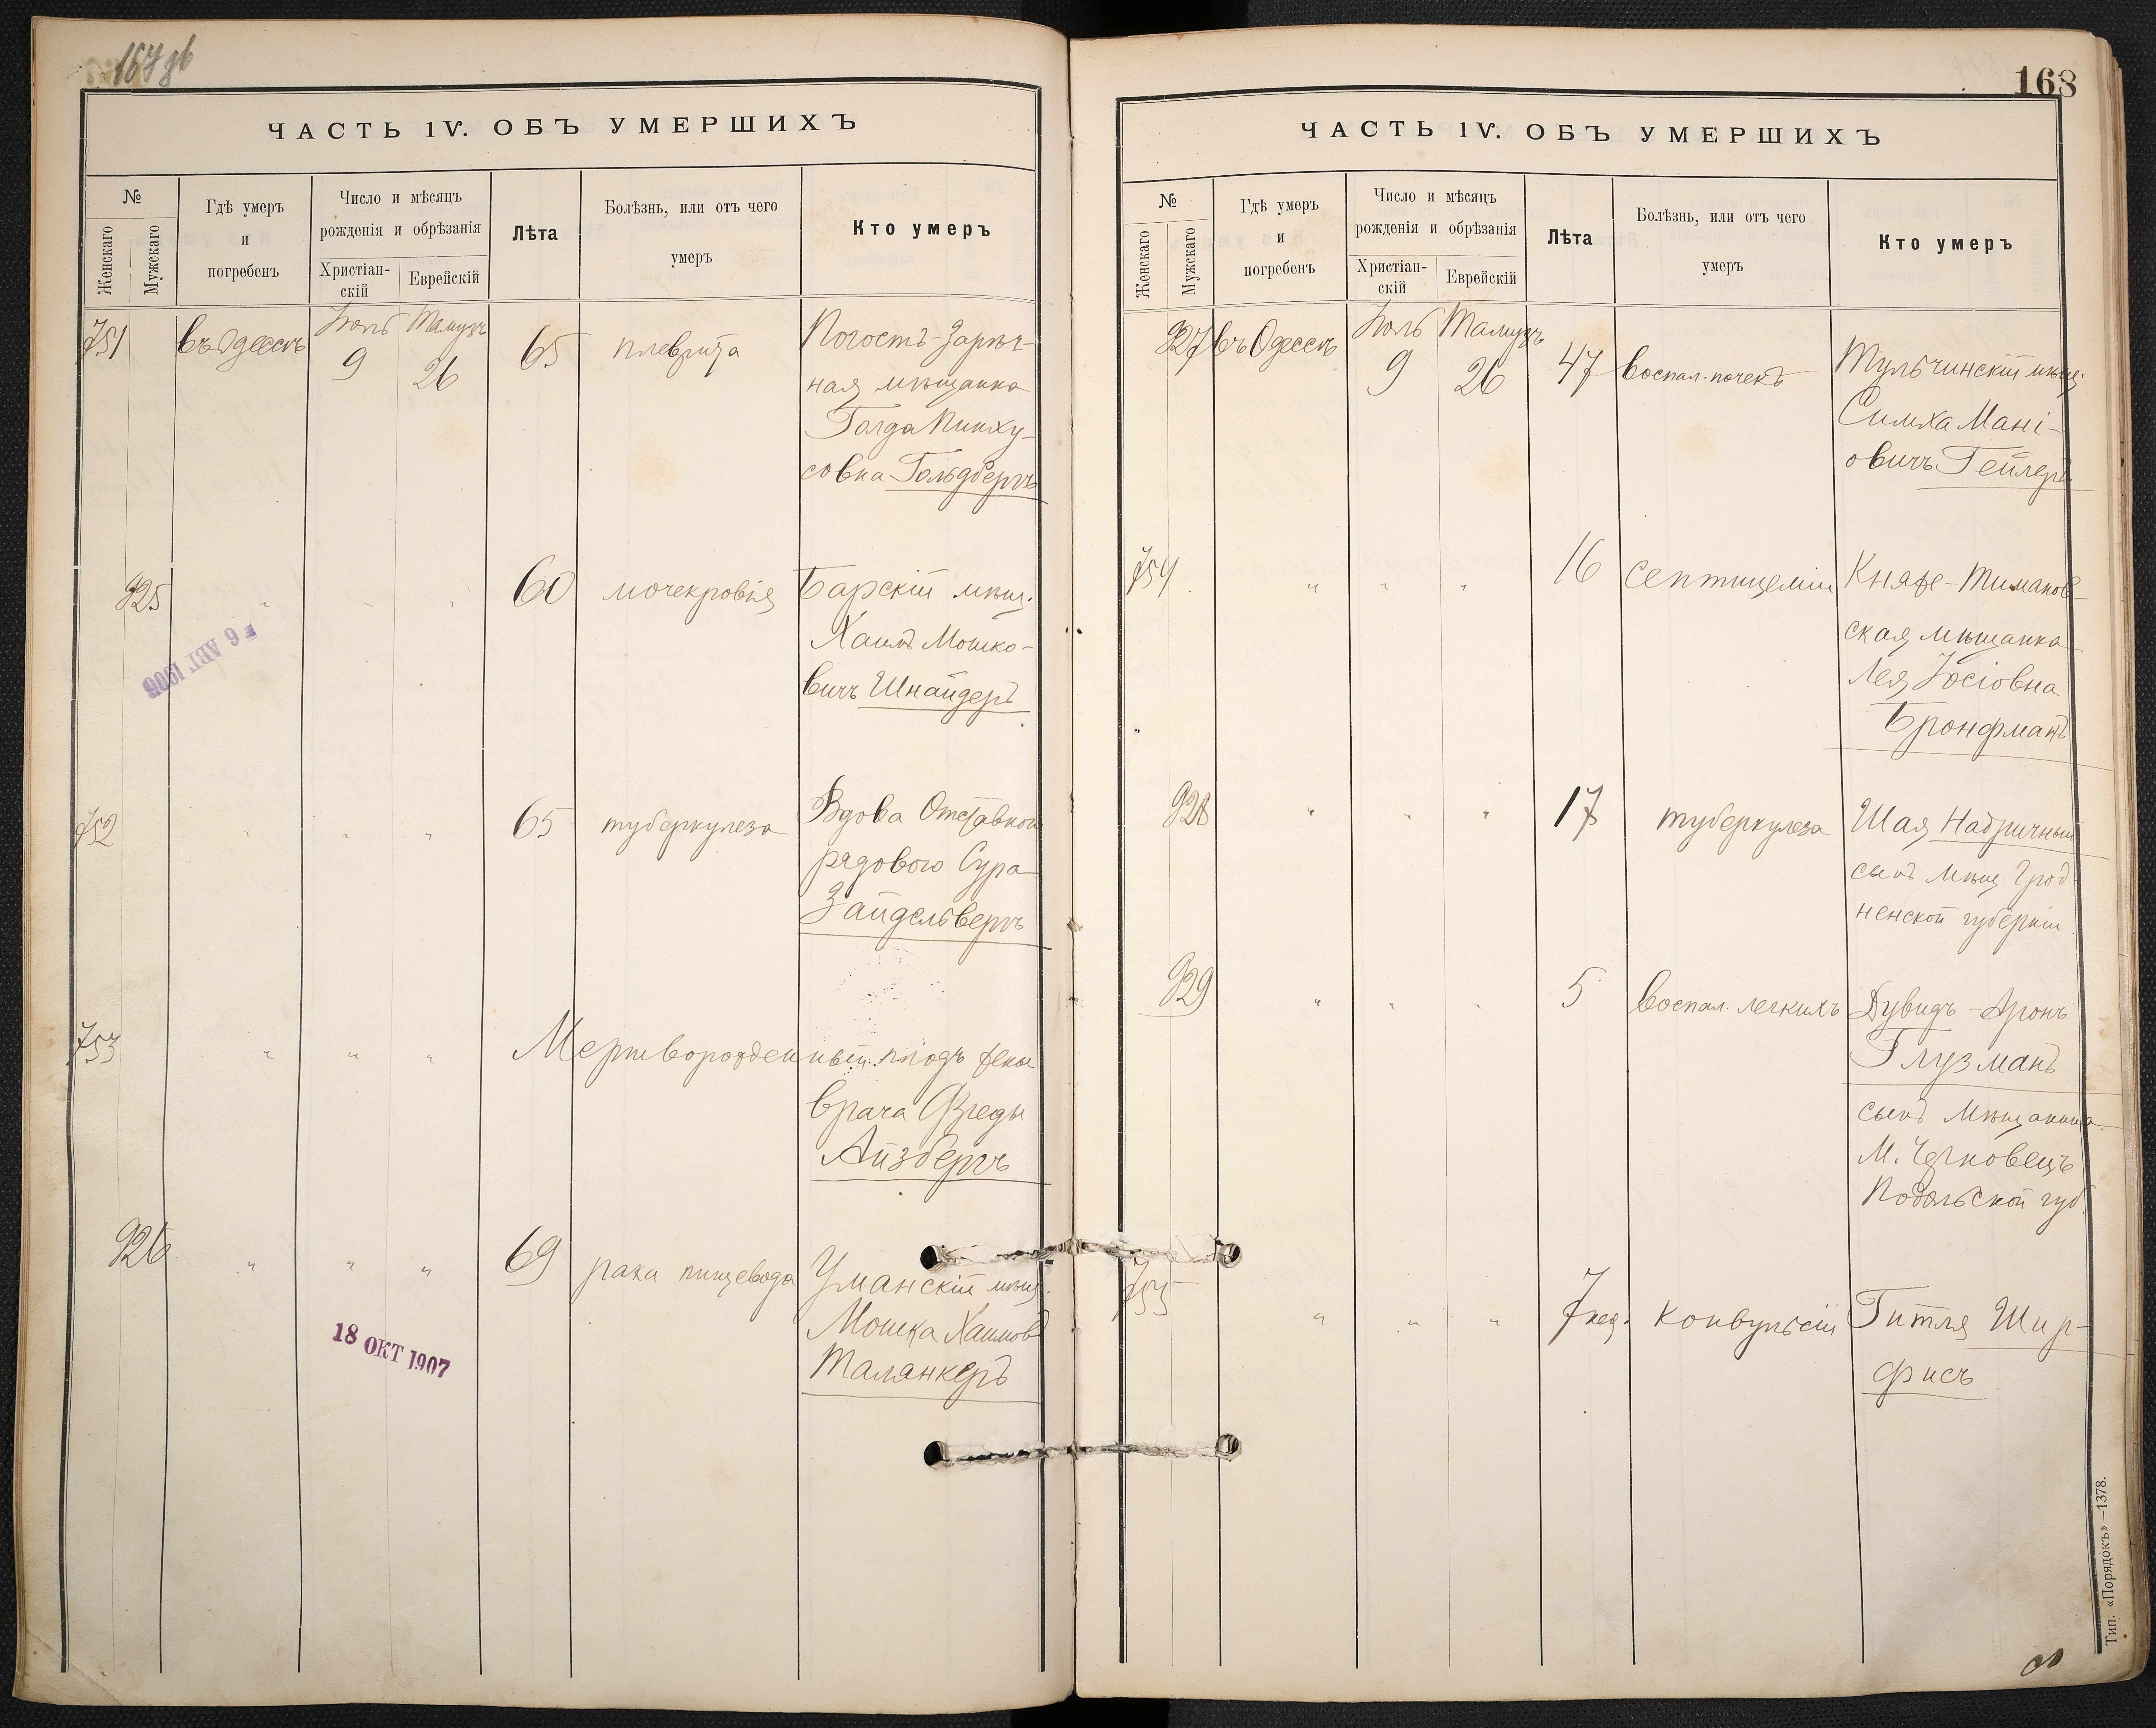 ЧАСТЬ IV. ОБЪ УМЕРШИХЪ
№
Женскаго
Мужскаго
Гдѣ умеръ
и
погребенъ
Число и мѣсяцъ
рожденія и обрѣзанія
Христіан-
скій
Еврейскій
Лѣта
Болѣзнь, или отъ чего
умеръ
Кто умеръ
751 въ Одессѣ Іюль 9 Тамузъ 26 65 плеврита Погостъ-Зарѣч-
ная мѣщанка
Голда Пинху-
совна Гольдбергъ
925 " " " 60 мочекровія Барскій мѣщ.
Хаимъ Мошко-
вичъ Шнайдеръ
6 АВГ 1906
752 " " " 65 туберкулеза Вдова Отставного
рядового Сура
Зайдельвергъ
753 " " " Мертворожденный плодъ жены
врача
Айзбергъ
926 " " " 69 рака пищевода Уманскій мѣщ.
Мошка Хаимовъ
Таланкеръ
18 ОКТ 1907
168
ЧАСТЬ IV. ОБЪ УМЕРШИХЪ
№
Женскаго
Мужскаго
Гдѣ умеръ
и
погребенъ
Число и мѣсяцъ
рожденія и обрѣзанія
Христіан-
скій
Еврейскій
Лѣта
Болѣзнь, или отъ чего
умеръ
Кто умеръ
927 въ Одессѣ Іюль 9 Тамузъ 26 47 воспал. почекъ Тульчинскій мѣщ.
Симха Мані-
овичъ Гейлеръ
754 " " " 16 септицеміи Княже-Тиманов-
ская мѣщанка
Лея Іосіовна
Бронфманъ
928 " " " 17 туберкулеза Шая Набричный
сынъ мѣщ. Грод-
ненской губерніи
929 " " " 5 воспал. легкихъ Дувидъ-Аронъ
Глузманъ
сынъ мѣщанина
м.
Подольской губ.
755 " " " 7 нед. конвульсіи Гитля Шир-
фисъ
Тип. «Порядокъ»—1378.